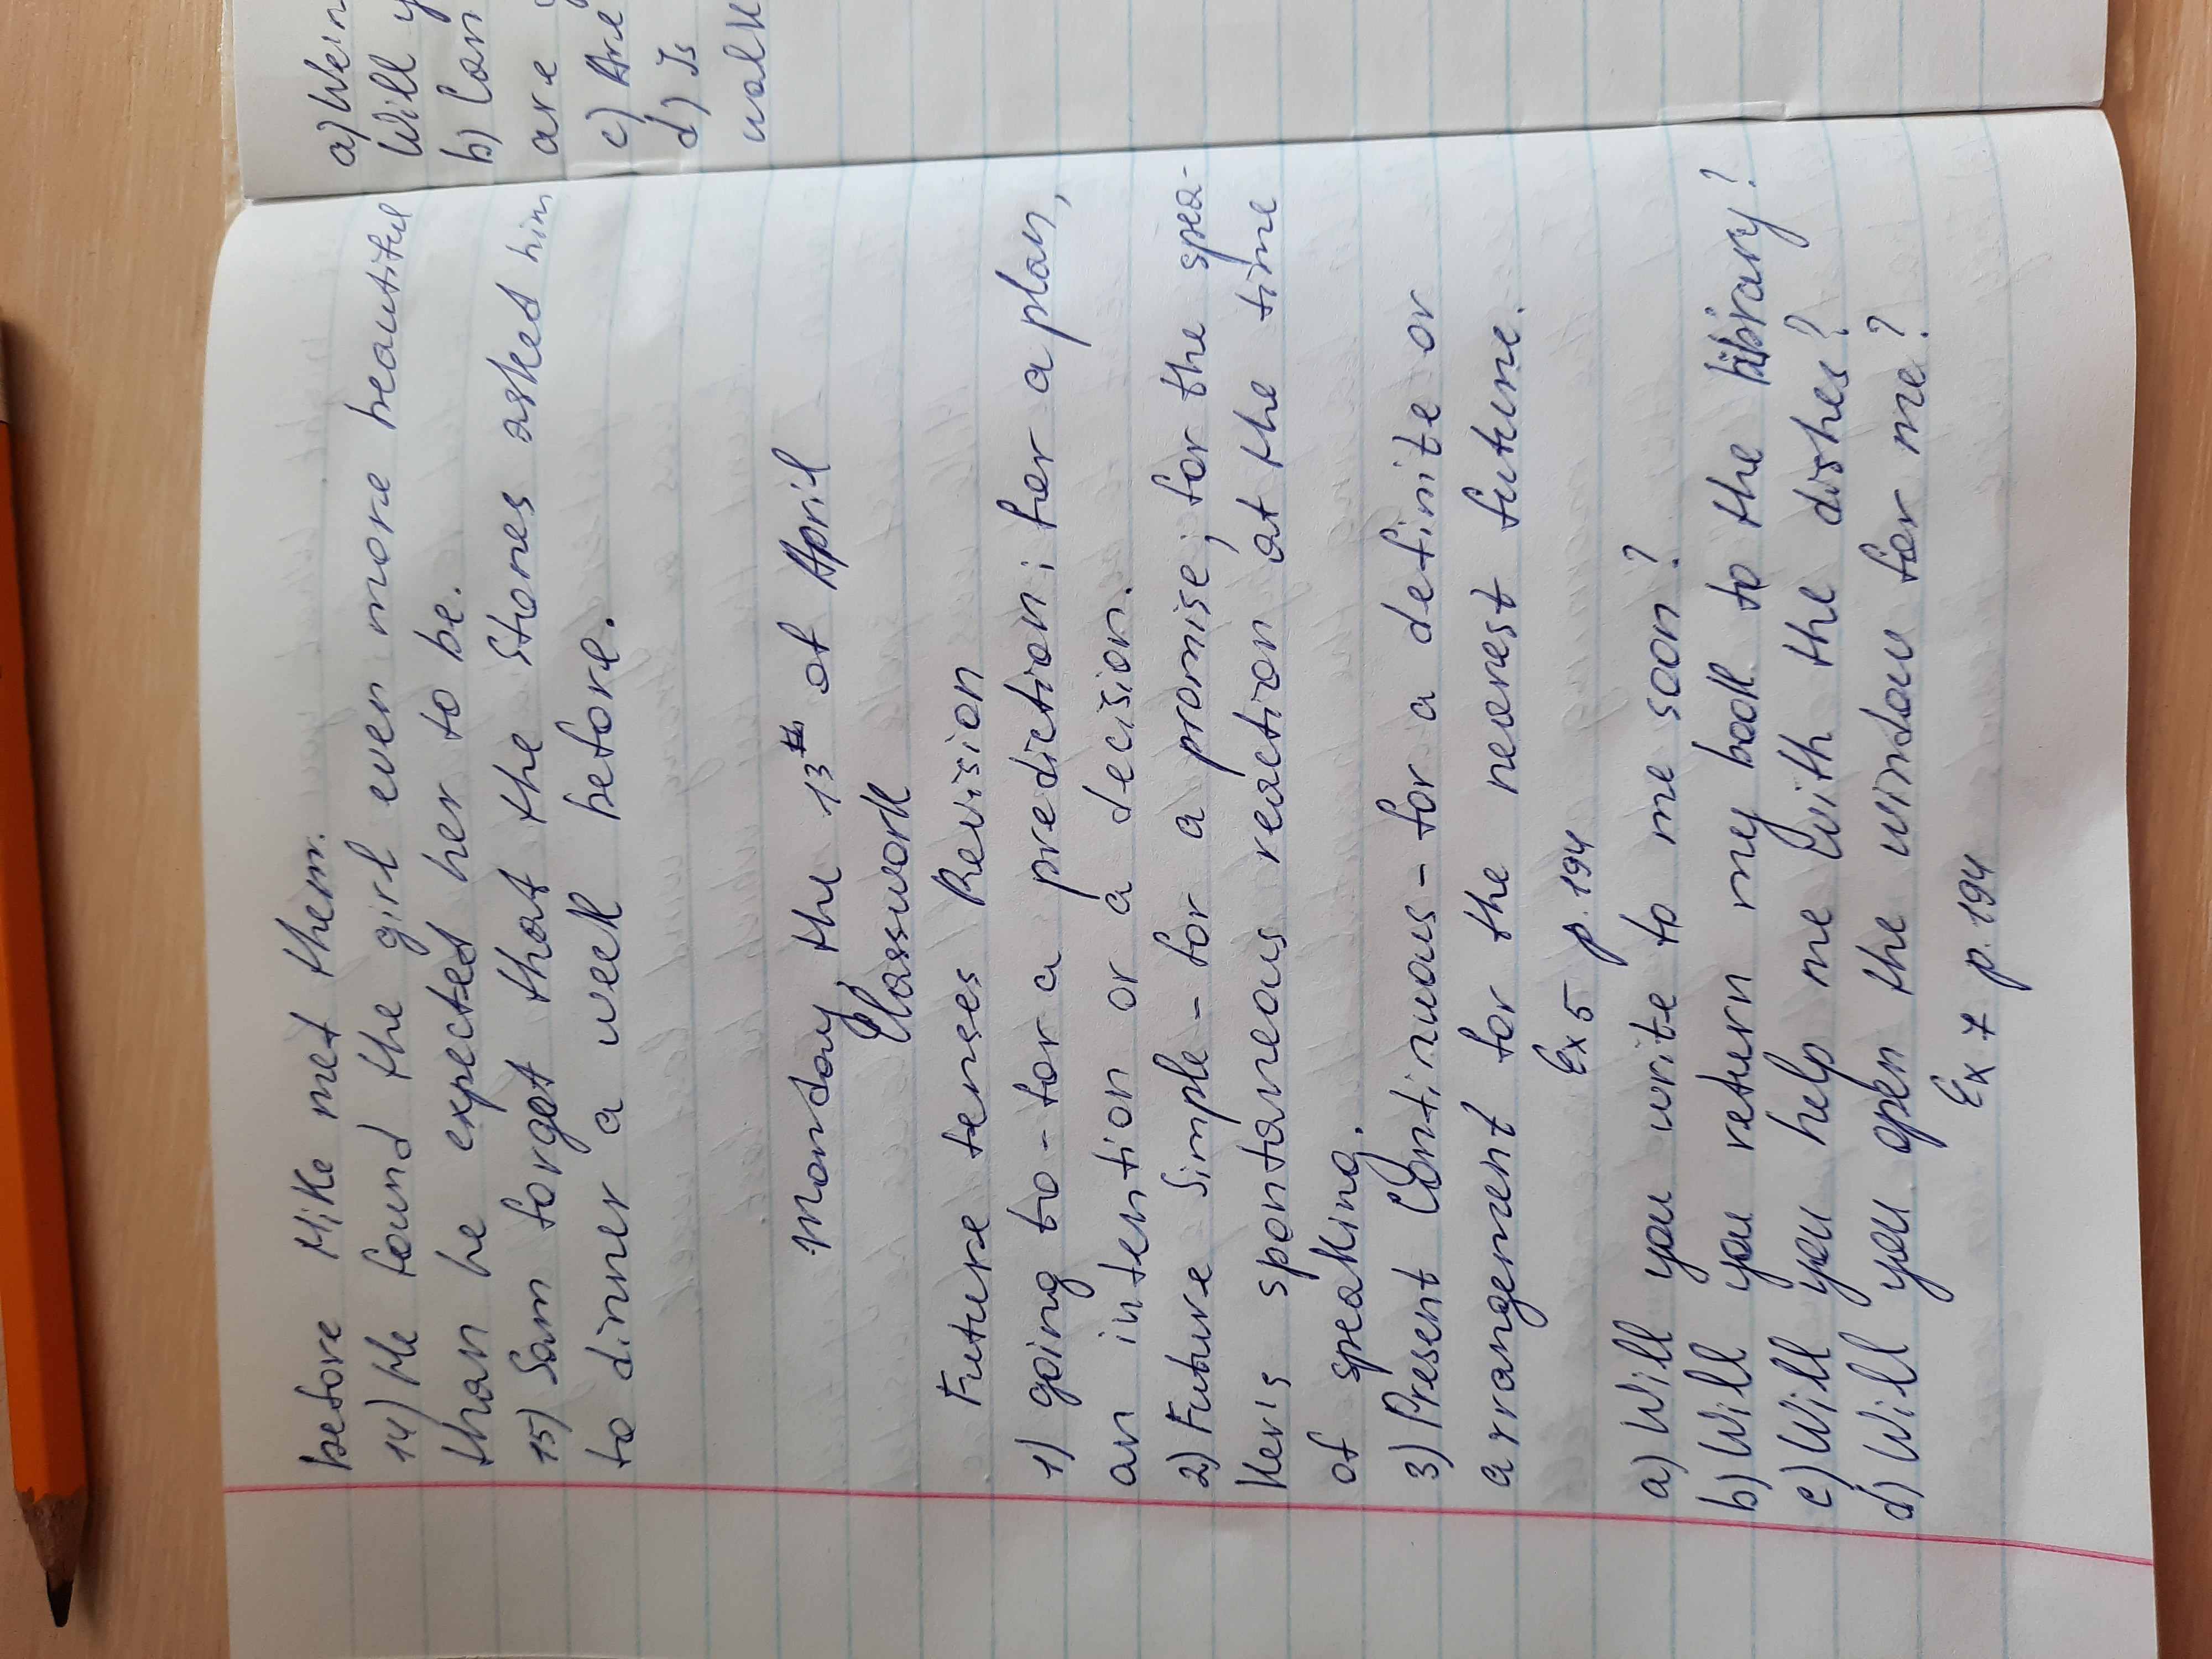 before Mike met them.
14) He found the girl even more beautiful
than he expected her to be.
15) Sam forgot that the Stones asked him
to dinner a week before.
Monday, the 13th of April
Classwork
Future tenses Revision
1) going to - for a prediction; for a plan,
an intention or a decision.
2) Future Simple - for a promise; for the spea-
ker's spontaneous reaction at the time
of speaking.
3) Present Continuous - for a definite or
arrangement for the nearest future.
Ex 5 p. 194
a) Will you write to me soon?
b) Will you return my book to the library?
c) Will you help me with the dishes?
d) Will you open the window for me?
Ex 7 p. 194
a)
Will
b)
are
c) Are
d) Is
walk